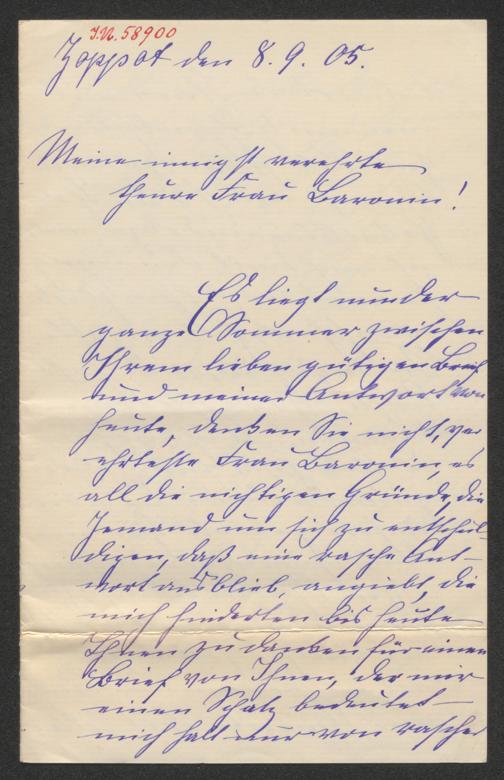 I.N. 58900
Zoppot den 8. 9. 05.
Meine innigst verehrte
theure Frau Baronin!
Es liegt nun der
ganze Sommer zwischen
Ihrem lieben gütigen Brief
und meiner Antwort von
heute, denken Sie nicht, ver
ehrteste Frau Baronin, es
all die nichtigen Gründe, die
Jemand um sich zu entschul-
digen, daß eine rasche Ant-
wort ausblieb, angiebt, die
mich hinderten bis heute
Ihnen zu danken für einen
Brief von Ihnen, der mir
einen Schatz bedeutet
mich hält nur von rascher